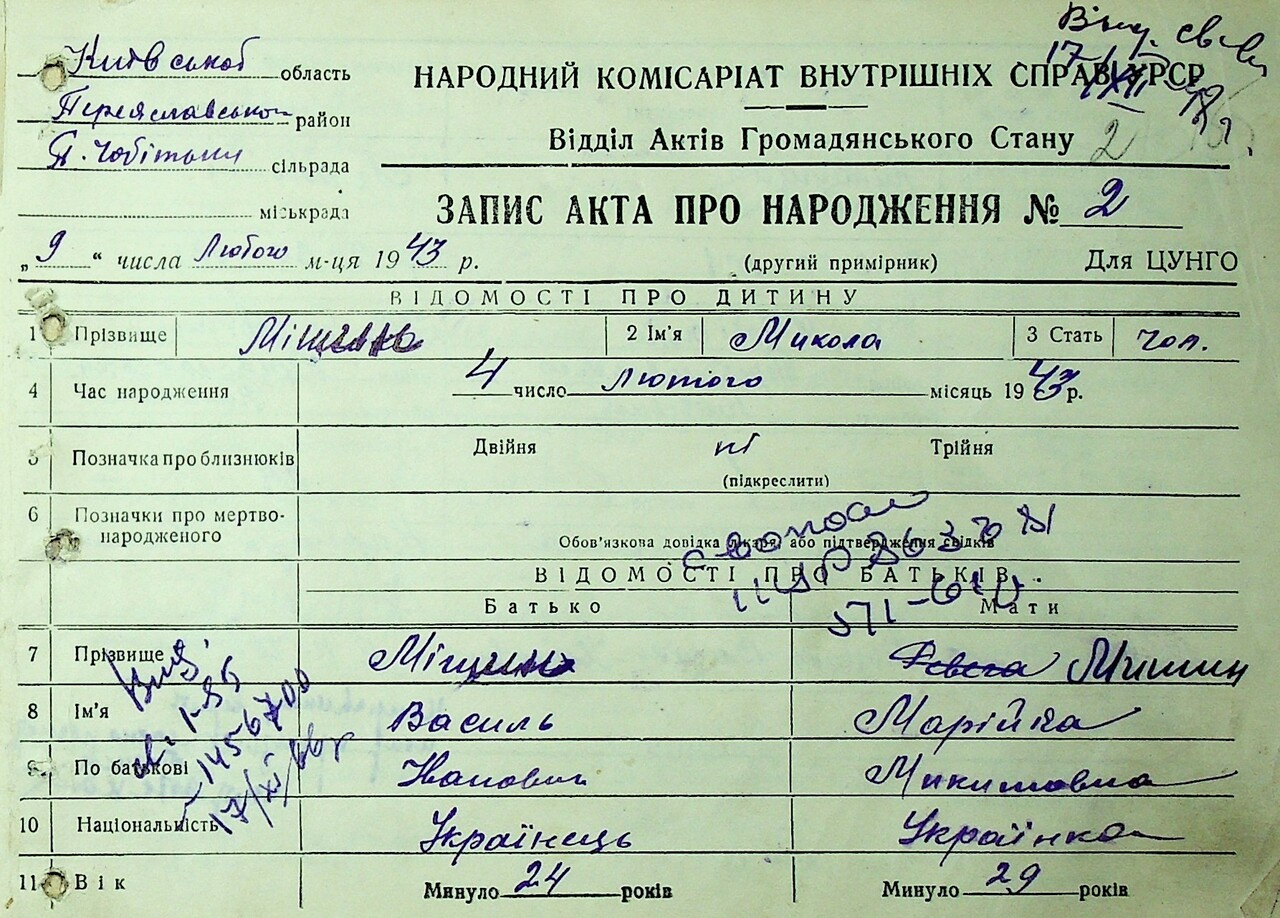 Київської область
Переяславського район
П. Чобітьки сільрада
міськрада
НАРОДНИЙ КОМІСАРІАТ ВНУТРІШНІХ СПРАВ УРСР
Відділ Актів Громадянського Стану
2
ЗАПИС АКТА ПРО НАРОДЖЕННЯ № 2
„9“ числа Лютого м-ця 1943 р.
(другий примірник)
Для ЦУНГО
ВІДОМОСТІ ПРО ДИТИНУ
1 Прізвище
2 Ім'я Микола
3 Стать чол.
4 Час народження 4 число Лютого місяць 1943 р.
5 Позначка про близнюків Двійня ні Трійня
(підкреслити)
6 Позначки про мертво-
народженого
Обов'язкова довідка лікаря, або підтвердження свідків
ВІДОМОСТІ ПРО БАТЬКІВ.
Батько Мати
7 Прізвище
8 Ім'я Василь Марійка
9 По батькові Микитовна
10 Національність Українець Українка
11 Вік Минуло 24 років Минуло 29 років